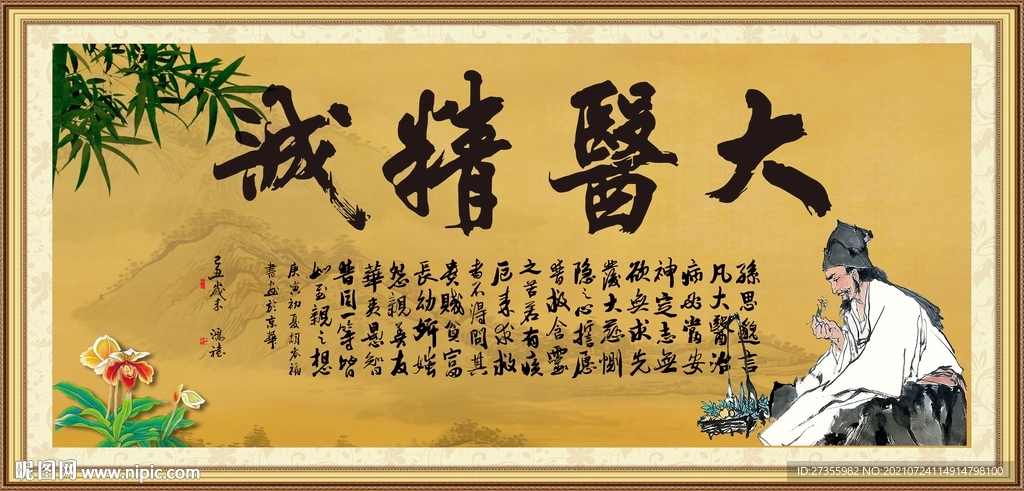 大醫精誠
孫思邈言
凡大醫治
病必當安
神定志無
欲無求先
發大慈惻
隱之心誓愿
普救含靈
之苦若有疾
厄来求救
者不得問其
貴賤貧富
長幼妍媸
怨親善友
華夷愚智
普同一等皆
如至親之想
庚寅初夏
書畫於京華
歲末
昵图网 www.nipic.com
ID:27355982 NO:20210724114914798100